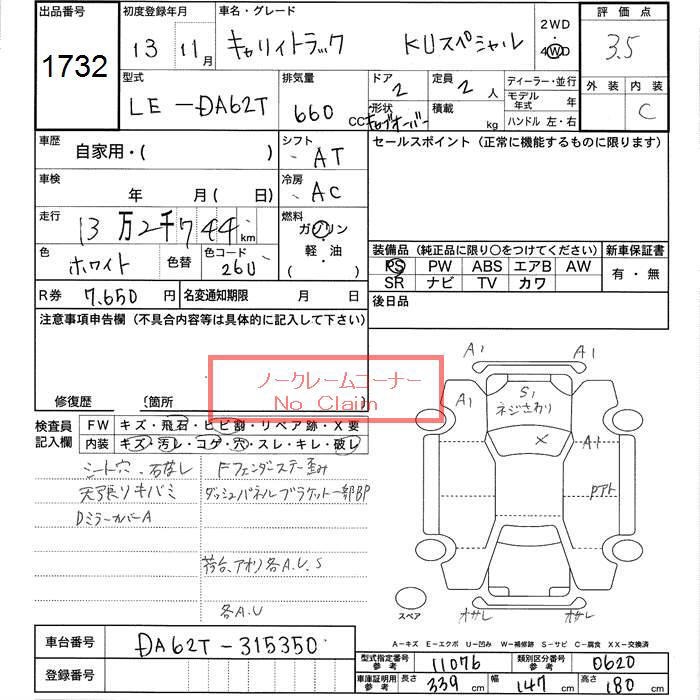 出品番号
1732
初度登録年月
13 11月
車名・グレード
キャリイトラック KUスペシャル
2WD
4WD
評価点
3.5
外装 内装
C
型式
LE-DA62T
排気量
660 CC
ドア
2
形状
定員
2 人
積載
kg
ディーラー・並行
モデル年式 年
ハンドル 左・右
車歴
自家用・( )
シフト
AT
セールスポイント (正常に機能するものに限ります)
車検
年 月 ( 日)
冷房
AC
走行
13万2千744km
燃料
ガソリン
軽・油
( )
色
ホワイト
色替
色コード
26U
装備品 (純正品に限り○をつけてください)
新車保証書
PS PW ABS エアB AW
SR ナビ TV カワ
有・無
R券 7,650 円
名変通知期限 月 日
後日品
注意事項申告欄 (不具合内容等は具体的に記入して下さい)
ノークレームコーナー
No Claim
修復歴 〔箇所 〕
検査員記入欄
FW キズ・飛石・ヒビ割・リペア跡・X要
内装 キズ・汚レ・コゲ・穴・スレ・キレ・破レ
シート穴
天張りキバミ
DミラーカバーA
Fフェンダステー歪み
ダッシュパネルブラケット一部BP
荷台、アオリ各A.U.S
各A.U
A1 A1
A1
S1
ネジさわり
X
A1
Pアト
スペア
A-キズ E-エクボ U-凹み W-補修跡 S-サビ C-腐食 XX-交換済
車台番号
DA62T-315350
登録番号
型式指定番号 参考
11076
類別区分番号 参考
0620
車庫証明用 参考
長さ 339 cm 幅 147 cm 高さ 180 cm